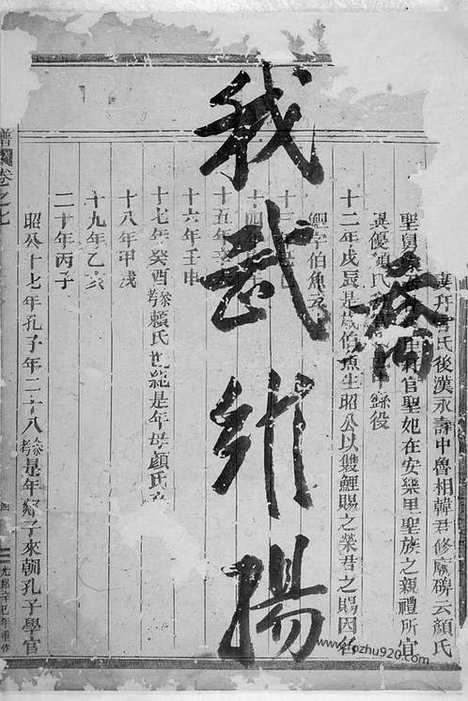 我武維揚
官氏後漢永壽中魯相韓君修廟碑云顏氏
聖舅 官聖妃在安樂里聖族之親禮所宜
異復顏氏 繇役
十二年戊辰是歲伯魚生昭公以雙鯉賜之榮君之賜因名
鯉字伯魚
十三
十四
十五年辛
十六年壬申
十七年癸酉 氏世紀是年母顏氏
十八年甲戌
十九年乙亥
二十年丙子
昭公十七年孔子年二十八參考是年郯子來朝孔子學官
譜 卷之七
光緒辛巳年重修